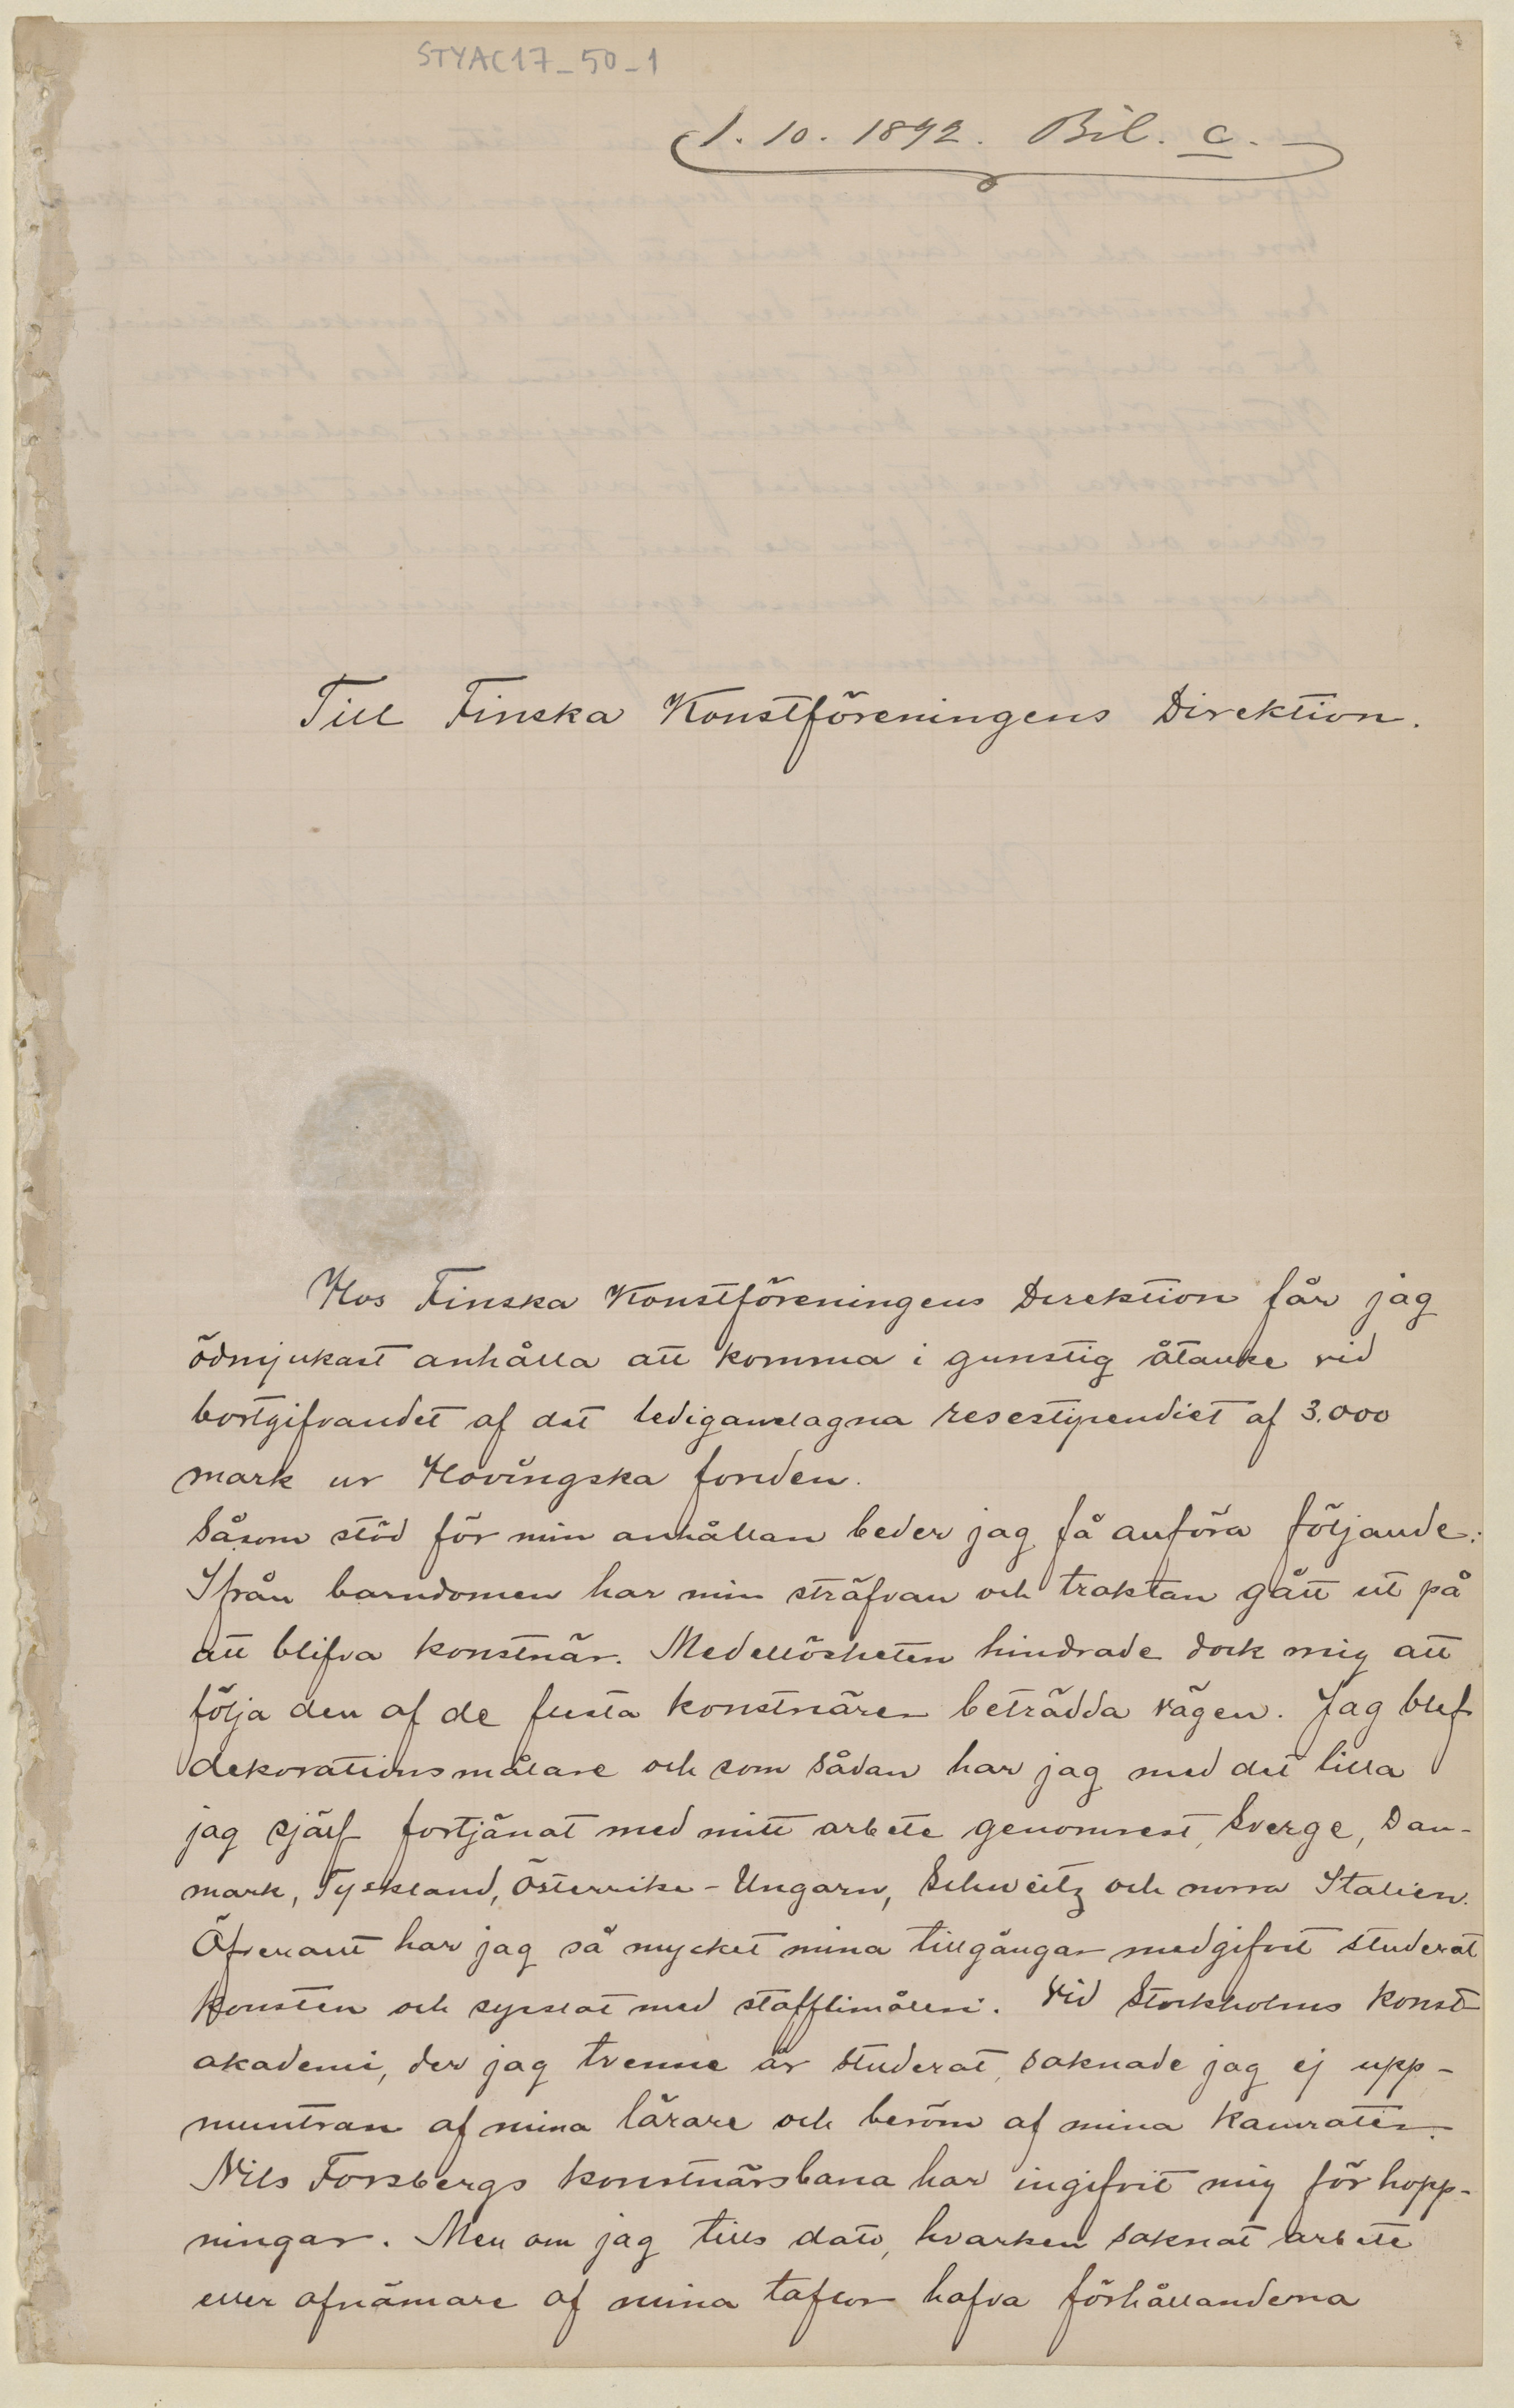 STYAC17_50_1
1. 10. 1892. Bil. c.
Till Finska Konstföreningens Direktion.
Hos Finska Konstföreningens Direktion får jag
ödmjukast anhålla att komma i gunstig åtanke vid
bortgifvandet af det lediganslagna resestipendiet af 3.000
mark ur Hovingska fonden.
Såsom stöd för min anhållan beder jag få anföra följande:
Ifrån barndomen har min sträfvan och traktan gått ut på
att blifva konstnär. Medellösheten hindrade dock mig att
följa den af de flesta konstnärer beträdda vägen. Jag blef
dekorationsmålare och som sådan har jag med det lilla
jag sjelf fortjänat med mitt arbete genomrest, Sverge, Dan-
mark, Tyskland, Österrike-Ungarn, Schweitz och norra Italien.
Öfverallt har jag så mycket mina tillgångar medgifvit studerat
konsten och sysslat med stafflimåleri. Vid Stockholms konst-
akademi, der jag tvenne år studerat, saknade jag ej upp-
muntran af mina lärare och beröm af mina kamrater.
Nils Forsbergs konstnärsbana har ingifvit mig förhopp-
ningar. Men om jag tills dato, hvarken saknat arbete
eller afnämare af mina taflor hafva förhållanderna